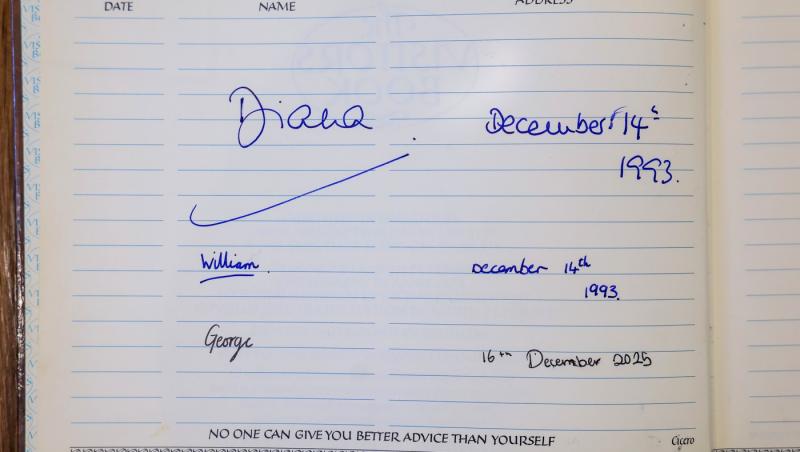 DATE NAME ADDRESS
Diana December 14th
1993.
William December 14th
1993.
George 16th December 2025
NO ONE CAN GIVE YOU BETTER ADVICE THAN YOURSELF Cicero